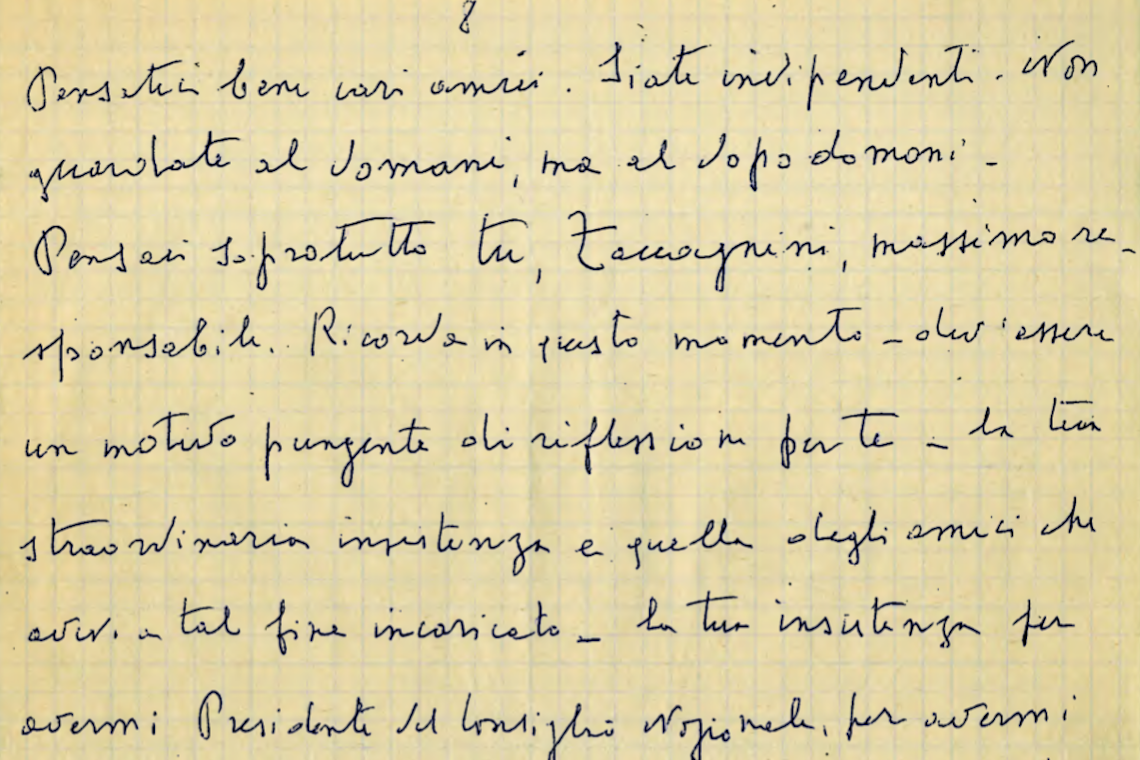 8
Pensateci bene cari amici. Siate indipendenti. Non
guardate al domani, ma al dopo domani.
Pensaci soprattutto tu, Zaccagnini, massimo re-
sponsabile. Ricorda in questo momento - dev'essere
un motivo pungente di riflessione per te - la tua
straordinaria insistenza e quella degli amici che
avevi a tal fine incaricato - la tua insistenza per
avermi Presidente del Consiglio Nazionale, per avermi